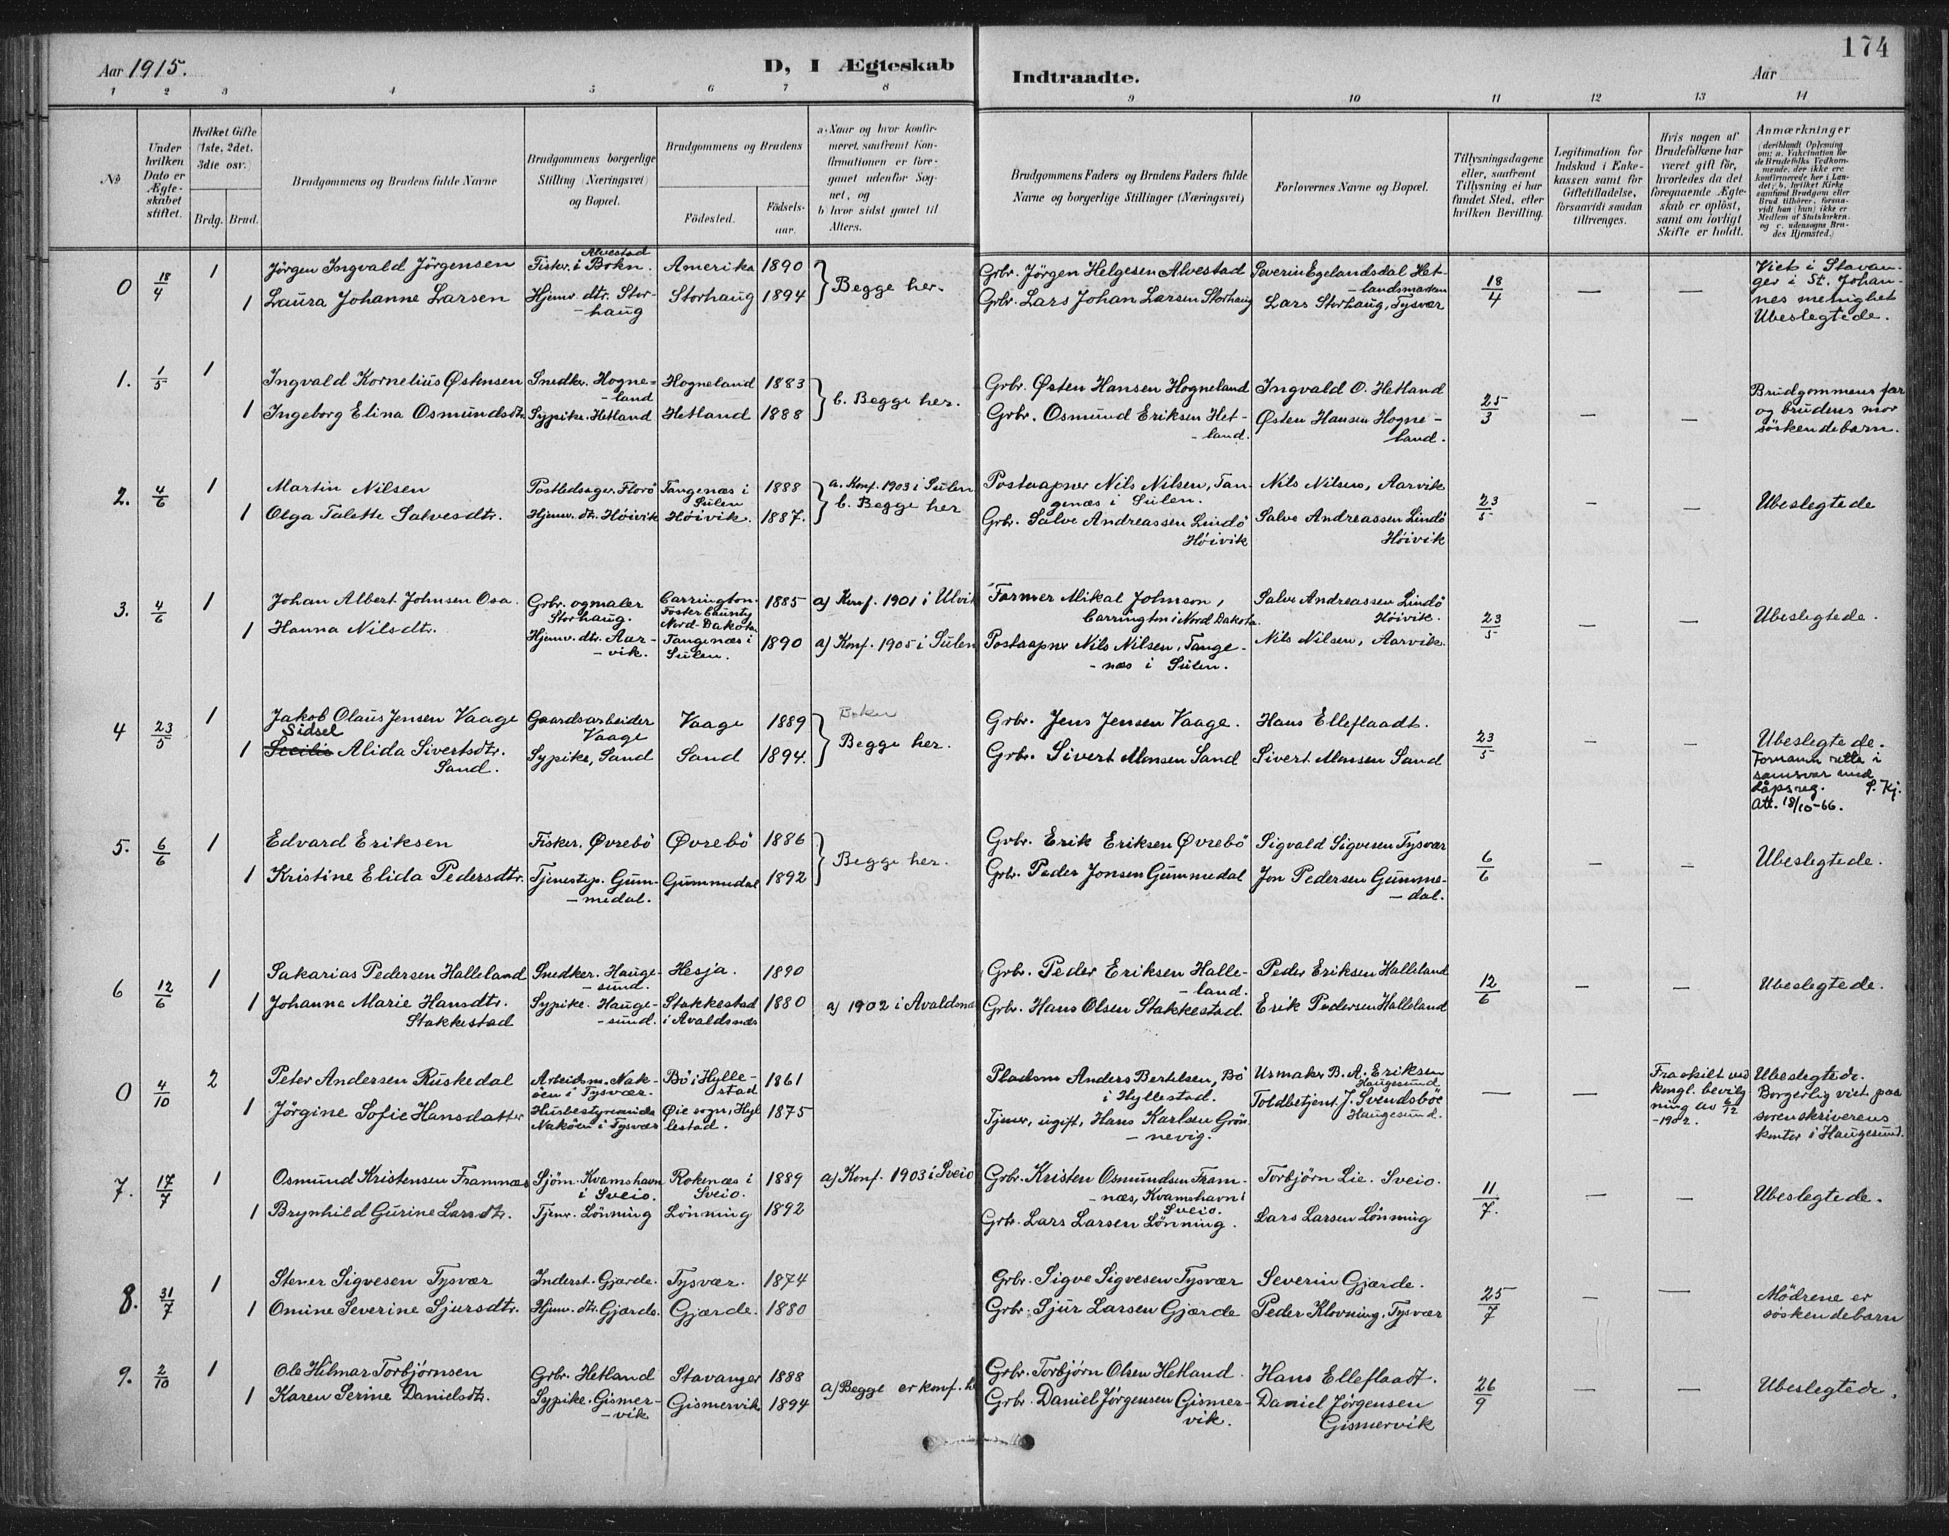 174
Aar 1915.
D, I Ægteskab
Indtraadte.
Aar
1 2 3 4 5 6 7 8 9 10 11 12 13 14
No.
Under hvilken Dato er Ægteskabet stiftet.
Hvilket Gifte (1ste, 2det, 3die osv.)
Brdg. Brud.
Brudgommens og Brudens fulde Navne
Brudgommens borgerlige Stilling (Næringsvei) og Bopæl.
Brudgommens og Brudens
Fødested.
Fødselsaar.
a. Naar og hvor konfirmeret, saafremt Konfirmationen er foregaaet udenfor Sognet, og
b. hvor sidst gaaet til Alters.
Brudgommens Faders og Brudens Faders fulde Navne og borgerlige Stillinger (Næringsvei)
Forlovernes Navne og Bopæl.
Tillysningsdagene eller, saafremt Tillysning ei har fundet Sted, efter hvilken Bevilling.
Legitimation for Indskud i Enkekassen samt for Giftetilladelse, forsaavidt saadan tiltrænges.
Hvis nogen af Brudefolkene har været gift før, hvorledes da det foregaaende Ægteskab er opløst, samt om lovligt Skifte er holdt.
Anmærkninger (deriblandt Oplysning om: a. Vakcination for de Brudefolks Vedkommende, der ikke ere konfirmerede her i Landet, b. hvilket Kirkesamfund Brudgom eller Brud tilhører, forsaavidt han (hun) ikke er Medlem af Statskirken, og c. udensogns Brudes Hjemsted.)
0 18/4 1 Jörgen Ingvald Jörgensen Fisker. i Bokn. Alvestad Amerika 1890 Begge her. Grbr. Jörgen Helgesen Alvestad Severin Egelandsdal Hetlandsmarken 18/4 — — Viet i Stavanger i St. Johannes menighet Ubeslegtede.
1 Laura Johanne Larsen Hjemv. dtr. Stor-haug Storhaug 1894 Grbr. Lars Johan Larsen Storhaug Lars Storhaug, Tysvær
1. 1/5 1 Ingvald Kornelius Østensen Snedkr. Hogne-land Hogneland 1883 b. Begge her. Grbr. Østen Hansen Hogneland Ingvald O. Hetland 25/3 — — Brudgommens far og brudens mor söskendebarn.
1 Ingeborg Elina Osmundsdtr. Sypike. Hetland Hetland 1888 Grbr. Osmund Eriksen Het-land. Østen Hansen Hogne-land.
2. 4/6 1 Martin Nilsen Postledsager. Florö Tangenæs i Sulen 1888 a. Konf. 1903 i Sulen b. Begge her Postaapner Nils Nilsen, Tangenæs i Sulen. Nils Nilsen, Aarvik 23/5 — — Ubeslegtede
1 Olga Talette Salvesdtr. Hjemv. dtr. Höivik Höivik. 1887. Grbr. Salve Andreassen Lindö Höivik Salve Andreassen Lindö Höivik
3. 4/6 1 Johan Albert Johnsen Osa. Grbr. og maler Storhaug. Carrington. Foster County Nord-Dakota 1885 a) Konf. 1901 i Ulvik Farmer Mikal Johnson, Carrington i Nord Dakota. Salve Andreassen Lindö Höivik. 23/5 — — Ubeslegtede.
1 Hanna Nilsdtr. Hjemv. dtr. Aar-vik. Tangenæs i Sulen. 1890 a) Konf. 1905 i Sulen Postaapner Nils Nilsen, Tange-næs i Sulen. Nils Nilsen, Aarvik.
4 23/5 1 Jakob Olaus Jensen Vaage Gaardsarbeider Vaage Vaage 1889 Begge her. Grbr. Jens Jensen Vaage. Hans Elleflaadt. 23/5 — — Ubeslegtede.
1 Sidsel Alida Sivertsdtr. Sand. Sypike, Sand Sand 1894. Grbr. Sivert Monsen Sand Sivert Monsen Sand Fornavn retta i samsvar med dåpsreg. S. Kj. Att. 18/10-66.
5. 6/6 1 Edvard Eriksen Fisker. Øvrebö Øvrebö 1886 Begge her. Grbr. Erik Eriksen Øvrebö Sigvald Sigvesen Tysvær 6/6 — — Ubeslegtede.
1 Kristine Elida Pedersdtr. Tjenestep. Gum-medal. Gummedal 1892 Grbr. Peder Jonsen Gummedal Jon Pedersen Gumme-dal.
6 12/6 1 Sakarias Pedersen Halleland Snedker. Hauge-sund. Hesja. 1890 Grbr. Peder Eriksen Halle-land. Peder Eriksen Halleland 12/6 — — Ubeslegtede.
1 Johanne Marie Hansdtr. Stakkestad Sypike. Hauge-sund. Stakkestad i Avaldsnæs 1880 a) 1902 i Avaldsnæs Grbr. Hans Olsen Stakkestad. Erik Pedersen Halleland
0 4/10 2 Peter Andersen Ruskedal Arbeidsm. Nak-öen i Tysvær. Bö i Hylle-stad 1861 Pladsm Anders Bertelsen, Bö i Hyllestad. Urmaker B. A. Eriksen Haugesund — — Fraskilt ved kongl. bevilgning av 6/12 -1912. Ubeslegtede. Borgerlig viet paa sorenskriverens kontor i Haugesund.
1 Jörgine Sofie Hansdatter Husbestyrerinde Naköen i Tysvær Øie sogn, Hyl lestad. 1875 Tjener, ugift, Hans Karlsen Grön-nevig. Toldbetjent J. Svendsböe Haugesund.
7. 17/7 1 Osmund Kristensen Framnæs Sjöm. Kvamshavn i Sveio. Rokenæs i Sveio. 1889 a) Konf. 1903 i Sveio Grbr. Kristen Osmundsen Fram-næs, Kvamshavn i Sveio. Torbjørn Lie. Sveio. 11/7. — — Ubeslegtede.
1 Brynhild Gurine Larsdtr. Tjenr. Lönning Lönning 1892 Grbr. Lars Larsen Lönning. Lars Larsen Lönning
8. 31/7 1 Stener Sigvesen Tysvær Inderst. Gjærde. Tysvær. 1874 Grbr. Sigve Sigvesen Tysvær Severin Gjærde. 25/7 — — Mödrene er söskendebarn
1 Omine Severine Sjursdtr. Hjemv. dtr. Gjærde. Gjærde. 1880 Grbr. Sjur Larsen Gjærde Peder Klovning, Tysvær
9. 2/10 1 Ole Hilmar Torbjörnsen Grbr. Hetland Stavanger 1888 a) Begge er konf. Grbr. Torbjörn Olsen Hetland Hans Elleflaadt. 26/9 — — Ubeslegtede.
1 Karen Serine Danielsdtr. Sypike. Gismer-vik Gismervik 1894 Grbr. Daniel Jörgensen Gismer-vik. Daniel Jørgensen Gismervik